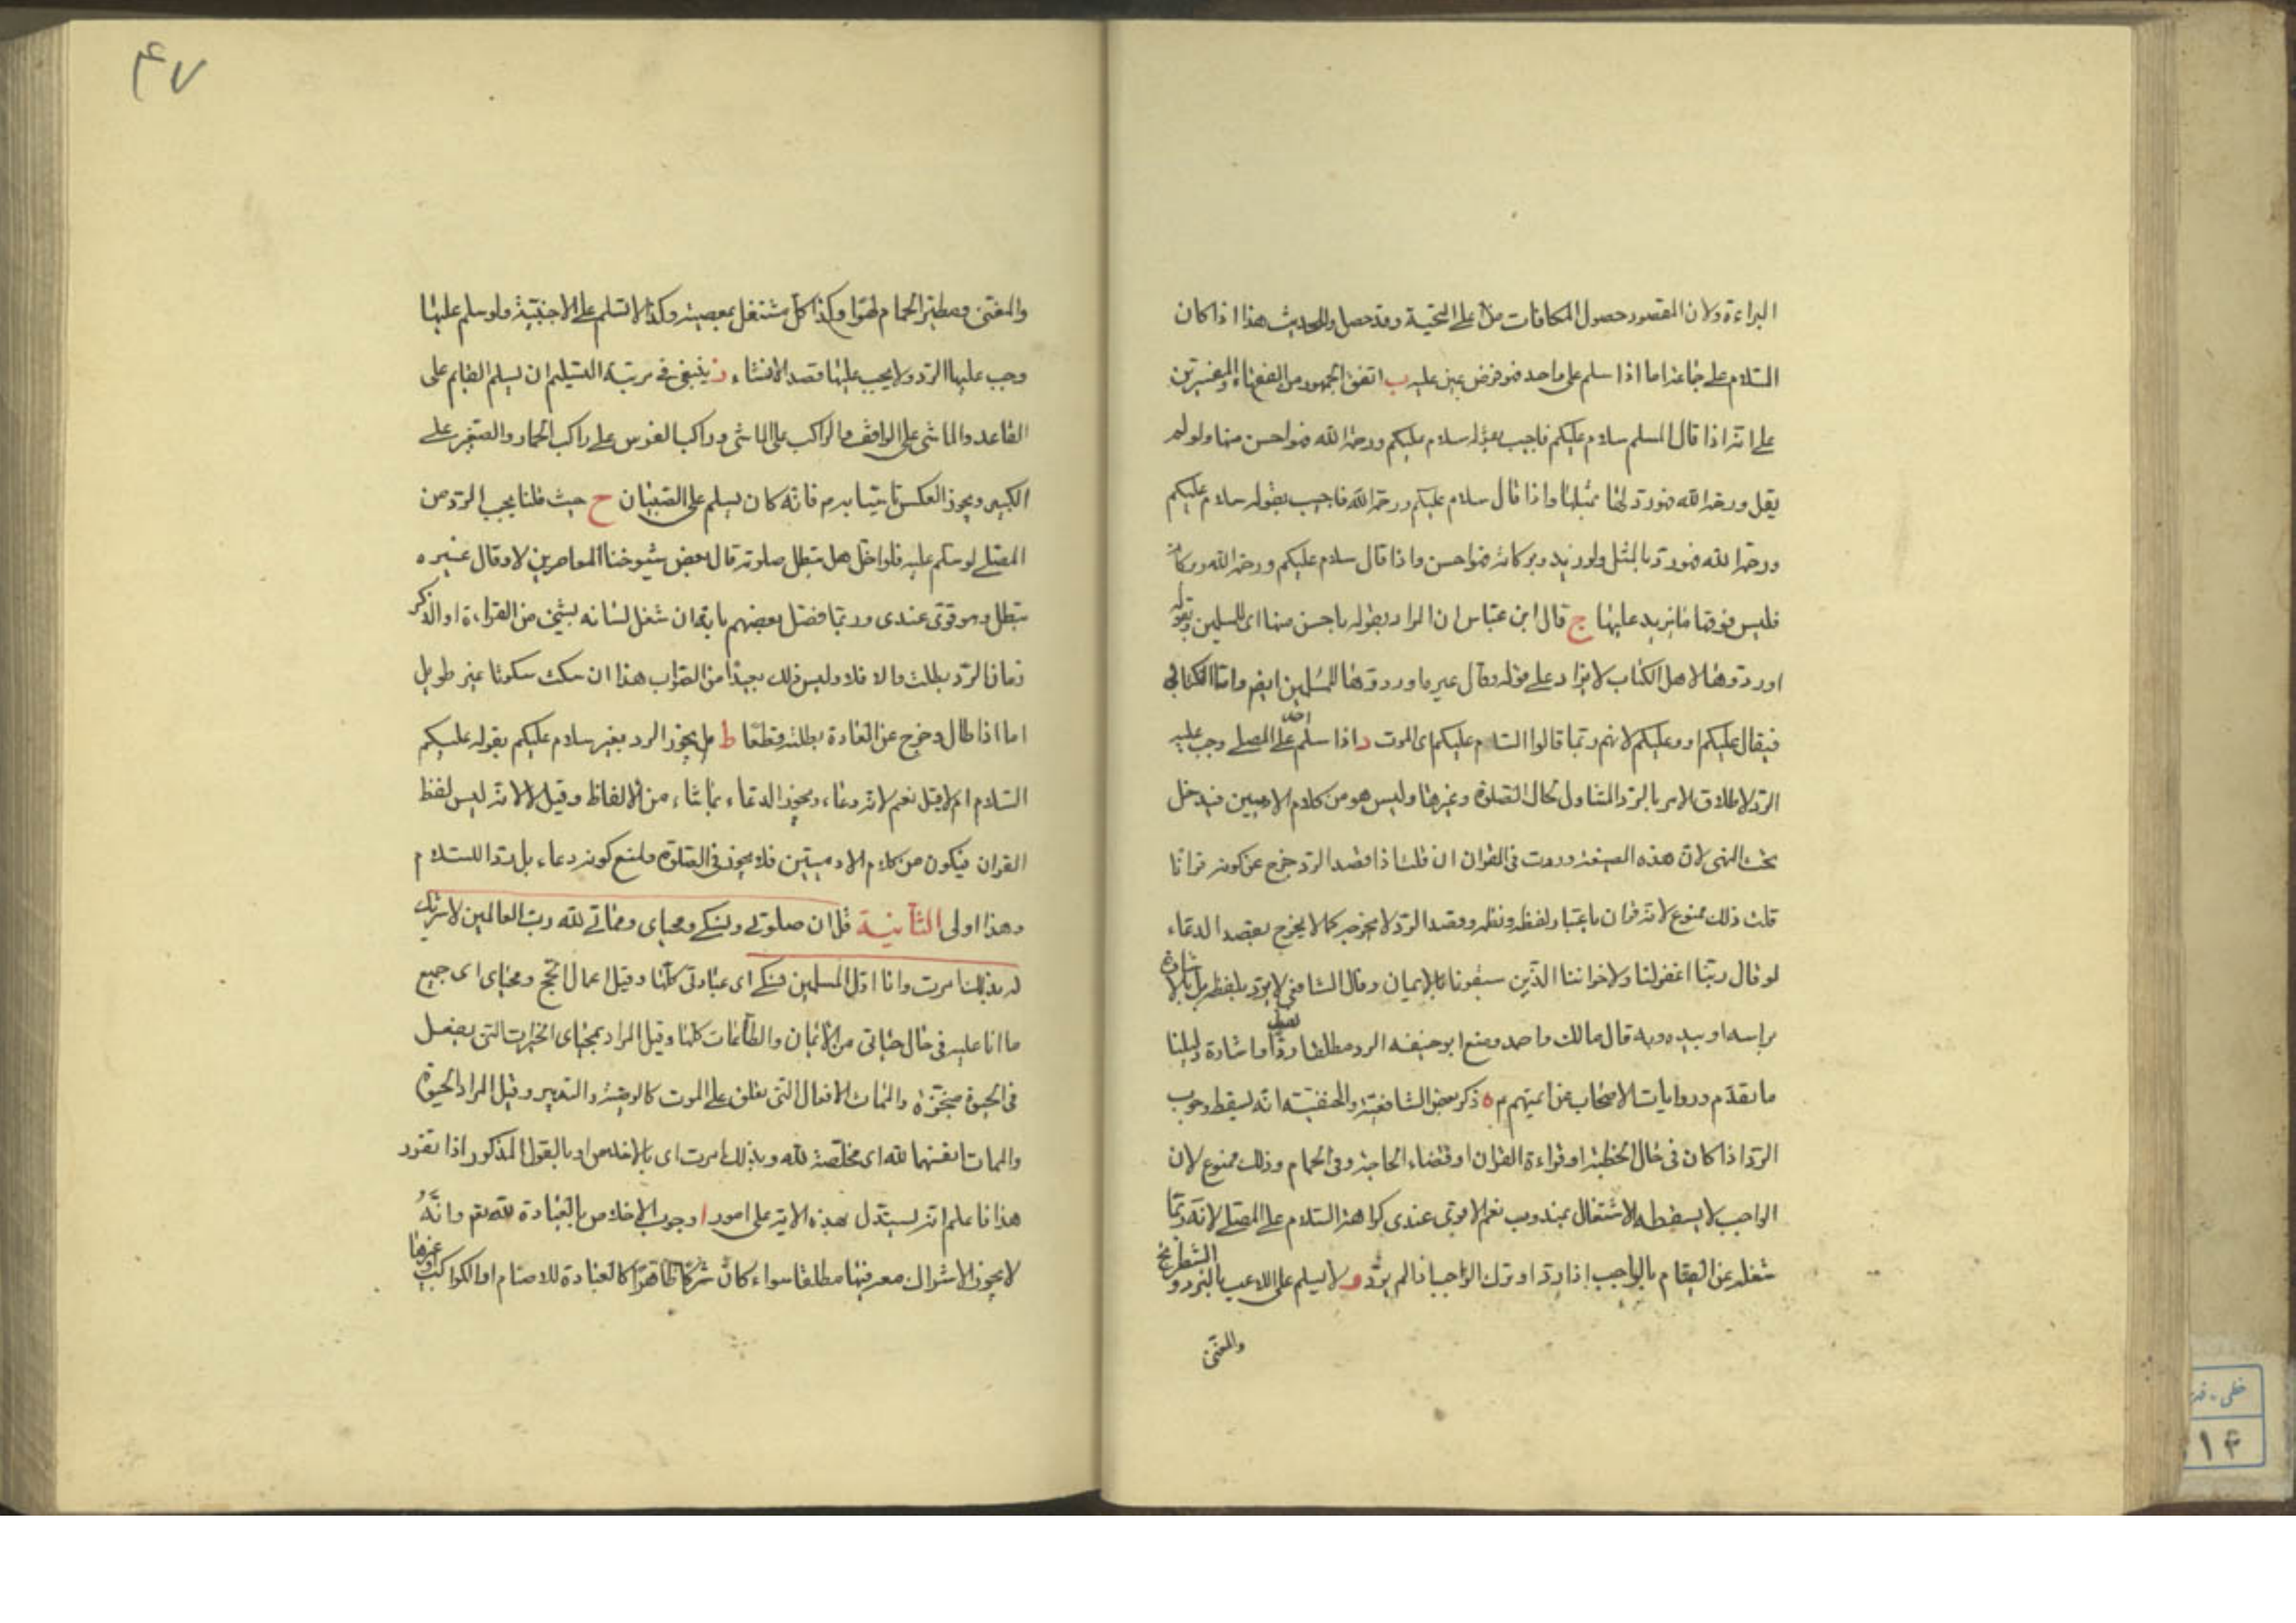 البراءة ولان المقصود حصول المكافات من على التحية وقد حصل وللحديث هذا اذا كان
السلام على جماعة اما اذا سلم على واحد فهو فرض عين عليه ب اتفق الجمهور من الفقهاء والمفسرين
على انه اذا قال المسلم سلام عليكم فاجيب بقوله سلام عليكم ورحمة الله فهو احسن منها ولو لم
يقل ورحمة الله فهو رد لها بمثلها واذا قال سلام عليكم ورحمة الله فاجيب بقوله سلام عليكم
ورحمة الله فهو رد بالمثل ولو زيد وبركاته فهو احسن واذا قال سلام عليكم ورحمة الله وبركاته
فليس فوقها ما يزيد عليها ج قال ابن عباس ان المراد بقوله باحسن منها اى للمسلمين وبقوله
او ردوها لاهل الكتاب لا يزاد على قوله وقال غيره او ردوها للمسلمين ايضا واما الكتابي
فيقال عليكم او وعليكم لانهم ربما قالوا السام عليكم اى الموت د اذا سلم احد على المصلى وجب عليه
الرد لاطلاق الامر بالرد المتناول لحال الصلوة وغيرها وليس هو من كلام الادميين فيدخل
تحت النهى لان هذه الصيغة وردت فى القران ان قلت اذا قصد الرد خرج عن كونه قرانا
قلت ذلك ممنوع لانه قران باعتبار لفظه ونظمه وقصد الرد لا يخرجه كما لا يخرج بقصد الدعاء
لو قال ربنا اغفر لنا ولاخواننا الذين سبقونا بالايمان وقال الشافعي لا يرد بلفظه بل بالاشارة
براسه او بيده وبه قال مالك واحمد ومنع ابو حنيفه الرد مطلقا لفظا واشارة دليلنا
ما تقدم وروايات الاصحاب عن ائمتهم م ه ذكر بعض الشافعية والحنفية انه يسقط وجوب
الرد اذا كان فى حال الخطبة او قراءة القران او قضاء الحاجة وفى الحمام وذلك ممنوع لان
الواجب لا يسقطه الاشتغال بمندوب نعم الاقوى عندى كراهة السلام على المصلى لانه ربما
شغله عن القيام بالواجب اذا رد او ترك الواجب اذا لم يرد و لا يسلم على اللاعب بالنرد والشطرنج
والمغنى
۴۷
والمغنى ومطير الحمام لهوا وكذا كل مشتغل بمعصية وكذا لا تسلم على الاجنبية ولو سلم عليها
وجب عليها الرد ولا يجب عليها قصد الانشاء ز ينبغى فى مرتبة التسليم ان يسلم القايم على
القاعد والماشى على الواقف والراكب على الماشى وراكب الفرس على راكب الحمار والصغير على
الكبير ويجوز العكس تاسيا به م فانه كان يسلم على الصبيان ح حيث قلنا يجب الرد من
المصلى لو سلم عليه فلو اخل هل تبطل صلوته قال بعض شيوخنا المعاصرين لا وقال غيره
تبطل وهو قوى عندى وربما فصل بعضهم بانه ان شغل لسانه بشئ من القراءة او الذكر
زمان الرد بطلت والا فلا وليس ذلك بعيدا من الصواب هذا ان سكت سكوتا غير طويل
اما اذا طال وخرج عن العادة بطلت قطعا ط هل يجوز الرد بغير سلام عليكم بقوله عليكم
السلام ام لا قيل نعم لانه دعاء ويجوز الدعاء بماشاء من الالفاظ وقيل لا لانه ليس لفظ
القران فيكون من كلام الادميين فلا يجوز فى الصلوة ولمنع كونه دعاء بل ردا للسلام
وهذا اولى الثانية قل ان صلوتى ونسكى ومحياى ومماتى لله رب العالمين لا شريك
له بذلك امرت وانا اول المسلمين نسكى اى عبادتى كلها وقيل اعمال الحج ومحياى اى جميع
ما انا عليه فى حال حياتى من الايمان والطاعات كلها وقيل المراد بمحياى الخيرات التى يفعل
فى الحيوة منجزة والممات الافعال التى تعلق على الموت كالوصية والتدبير وقيل المراد الحيوة
والممات انفسهما لله اى مخلصة لله وبذلك امرت اى بالاخلاص او بالقول المذكور اذا تقرر
هذا فاعلم انه يستدل بهذه الاية على امور ا وجوب الاخلاص بالعبادة لله تعم وانه
لا يجوز الاشراك معه فيها مطلقا سواء كان شركا ظاهرا كالعبادة للاصنام او الكواكب وغيرها